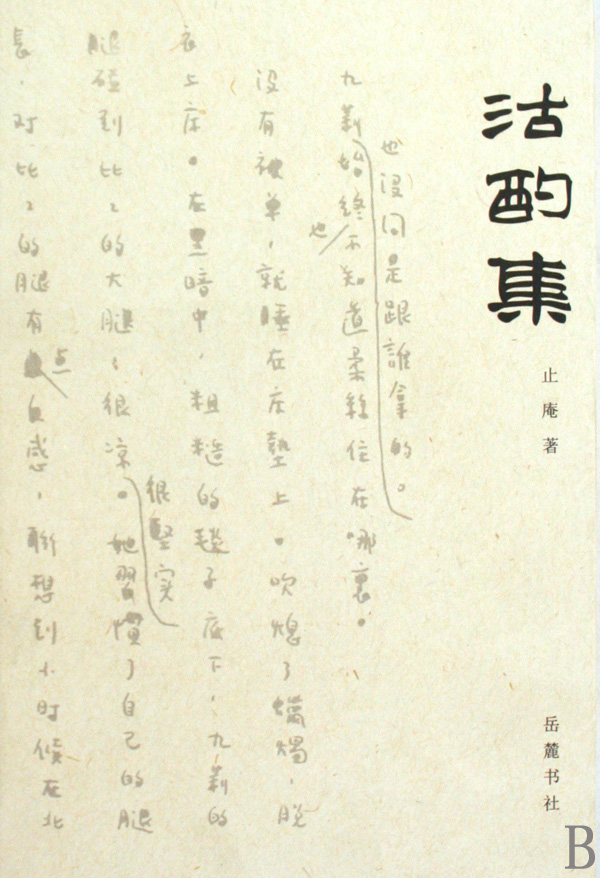 沽酌集
止庵著
岳麓书社
也沒問是跟誰拿的。
九莉始終不知道柔絲住在哪裏。
也
沒有被單，就睡在床墊上。吹熄了蠟燭，脫
衣上床。在黑暗中，粗糙的毯子底下，九莉的
很堅实
腿碰到比〻的大腿，很凉。她習慣了自己的腿
点
長，對比〻的腿有感，聯想到小時候在北
B